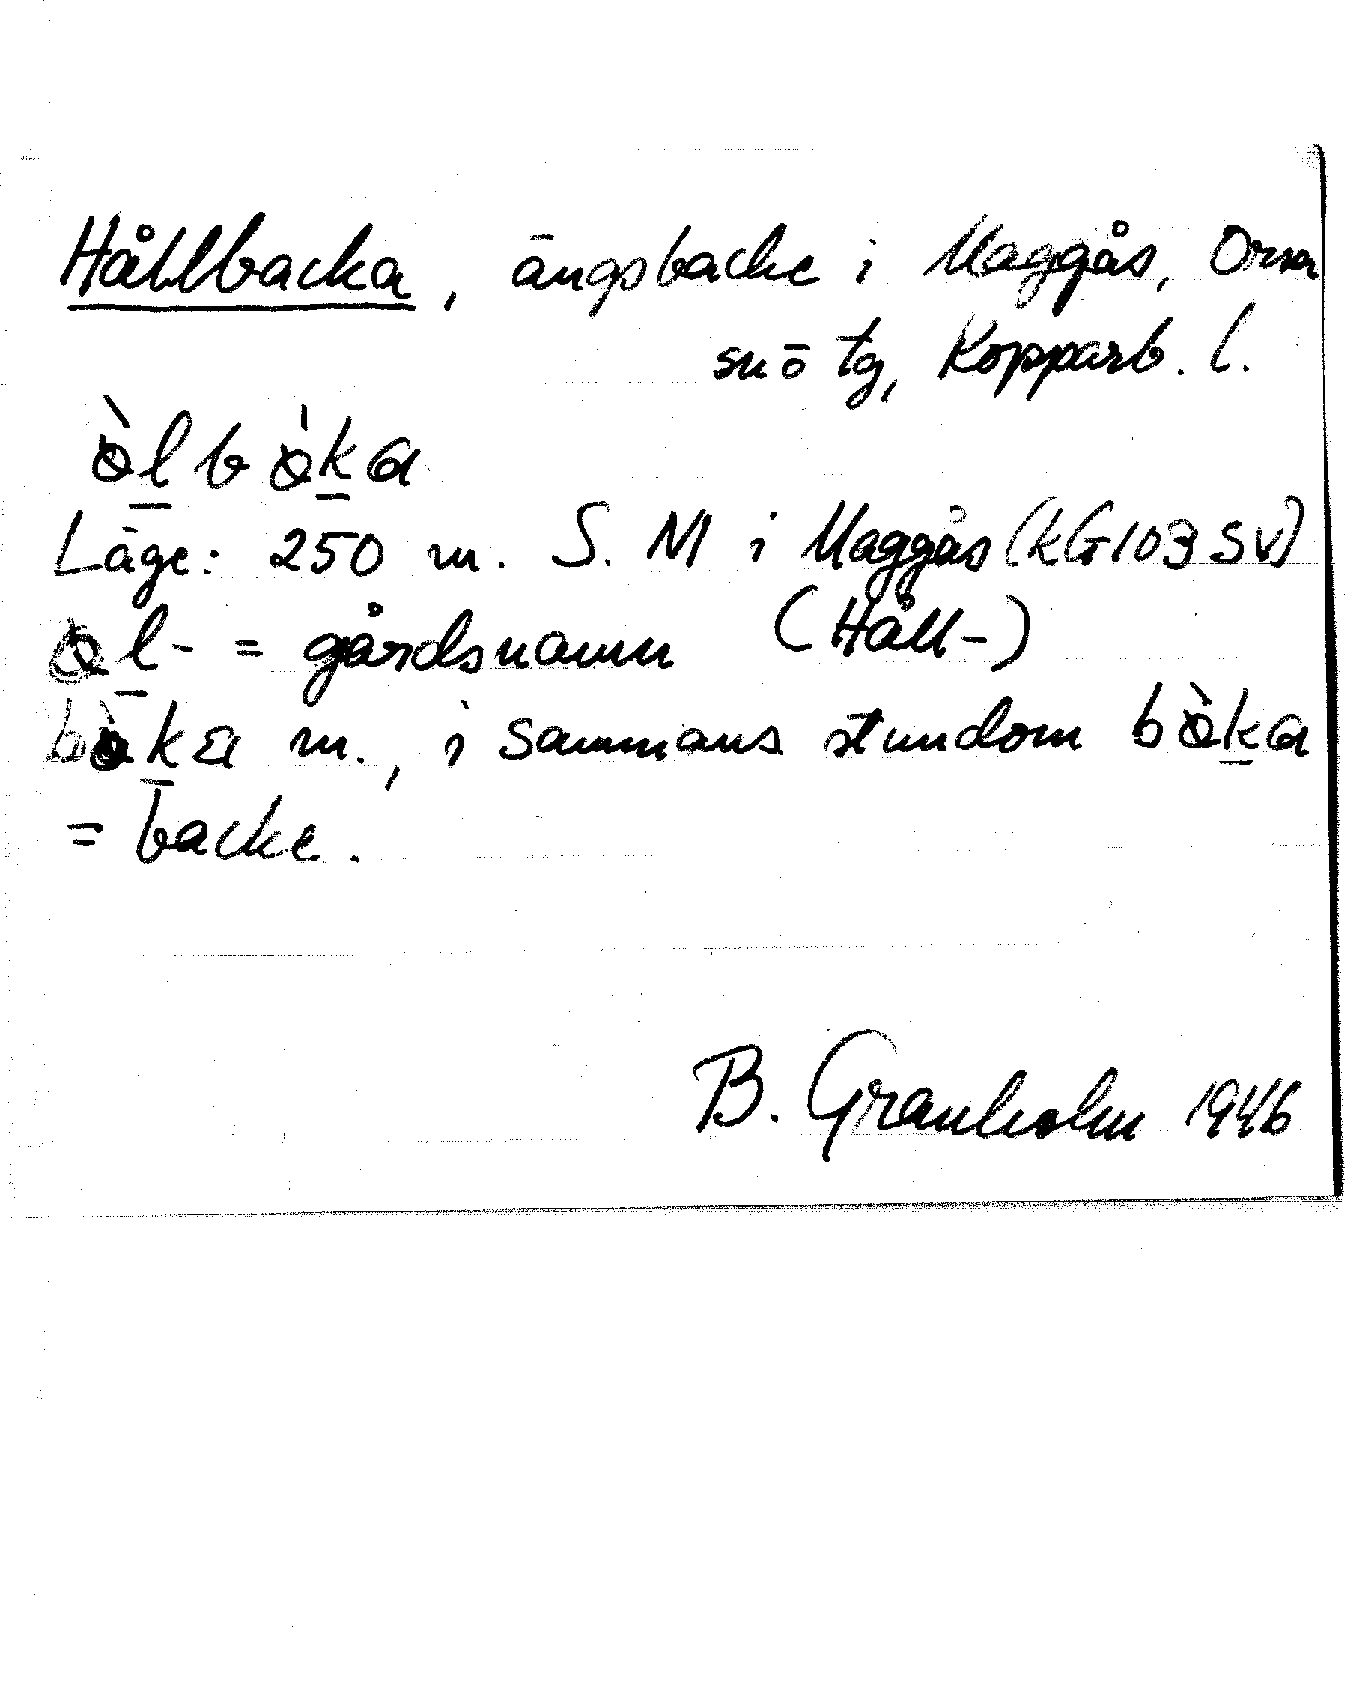 Hållbacka, ängsbacke i Maggås, Orsa
sn ö tg, Kopparb. l.
òl̲bòk̲a
Läge: 250 m. S. M i Maggås (kG 103 SV)
òl̲- = gårdsnamn (Håll-)
bòk̲a m., i sammans stundom bòk̲a
= backe.
B. Granholm 1946